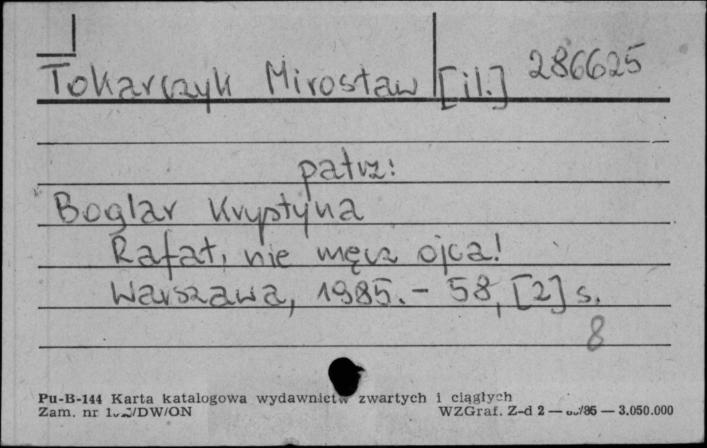 Tokarczyk Mirosław [il.] 286625
patrz:
Boglar Krystyna
Rafał, nie męcz ojca!
Warszawa, 1985. - 58, [2] s.
8
Pu-B-144 Karta katalogowa wydawnictw zwartych i ciągłych
Zam. nr /DW/ON WZGraf. Z-d 2 — /86 — 3.050.000